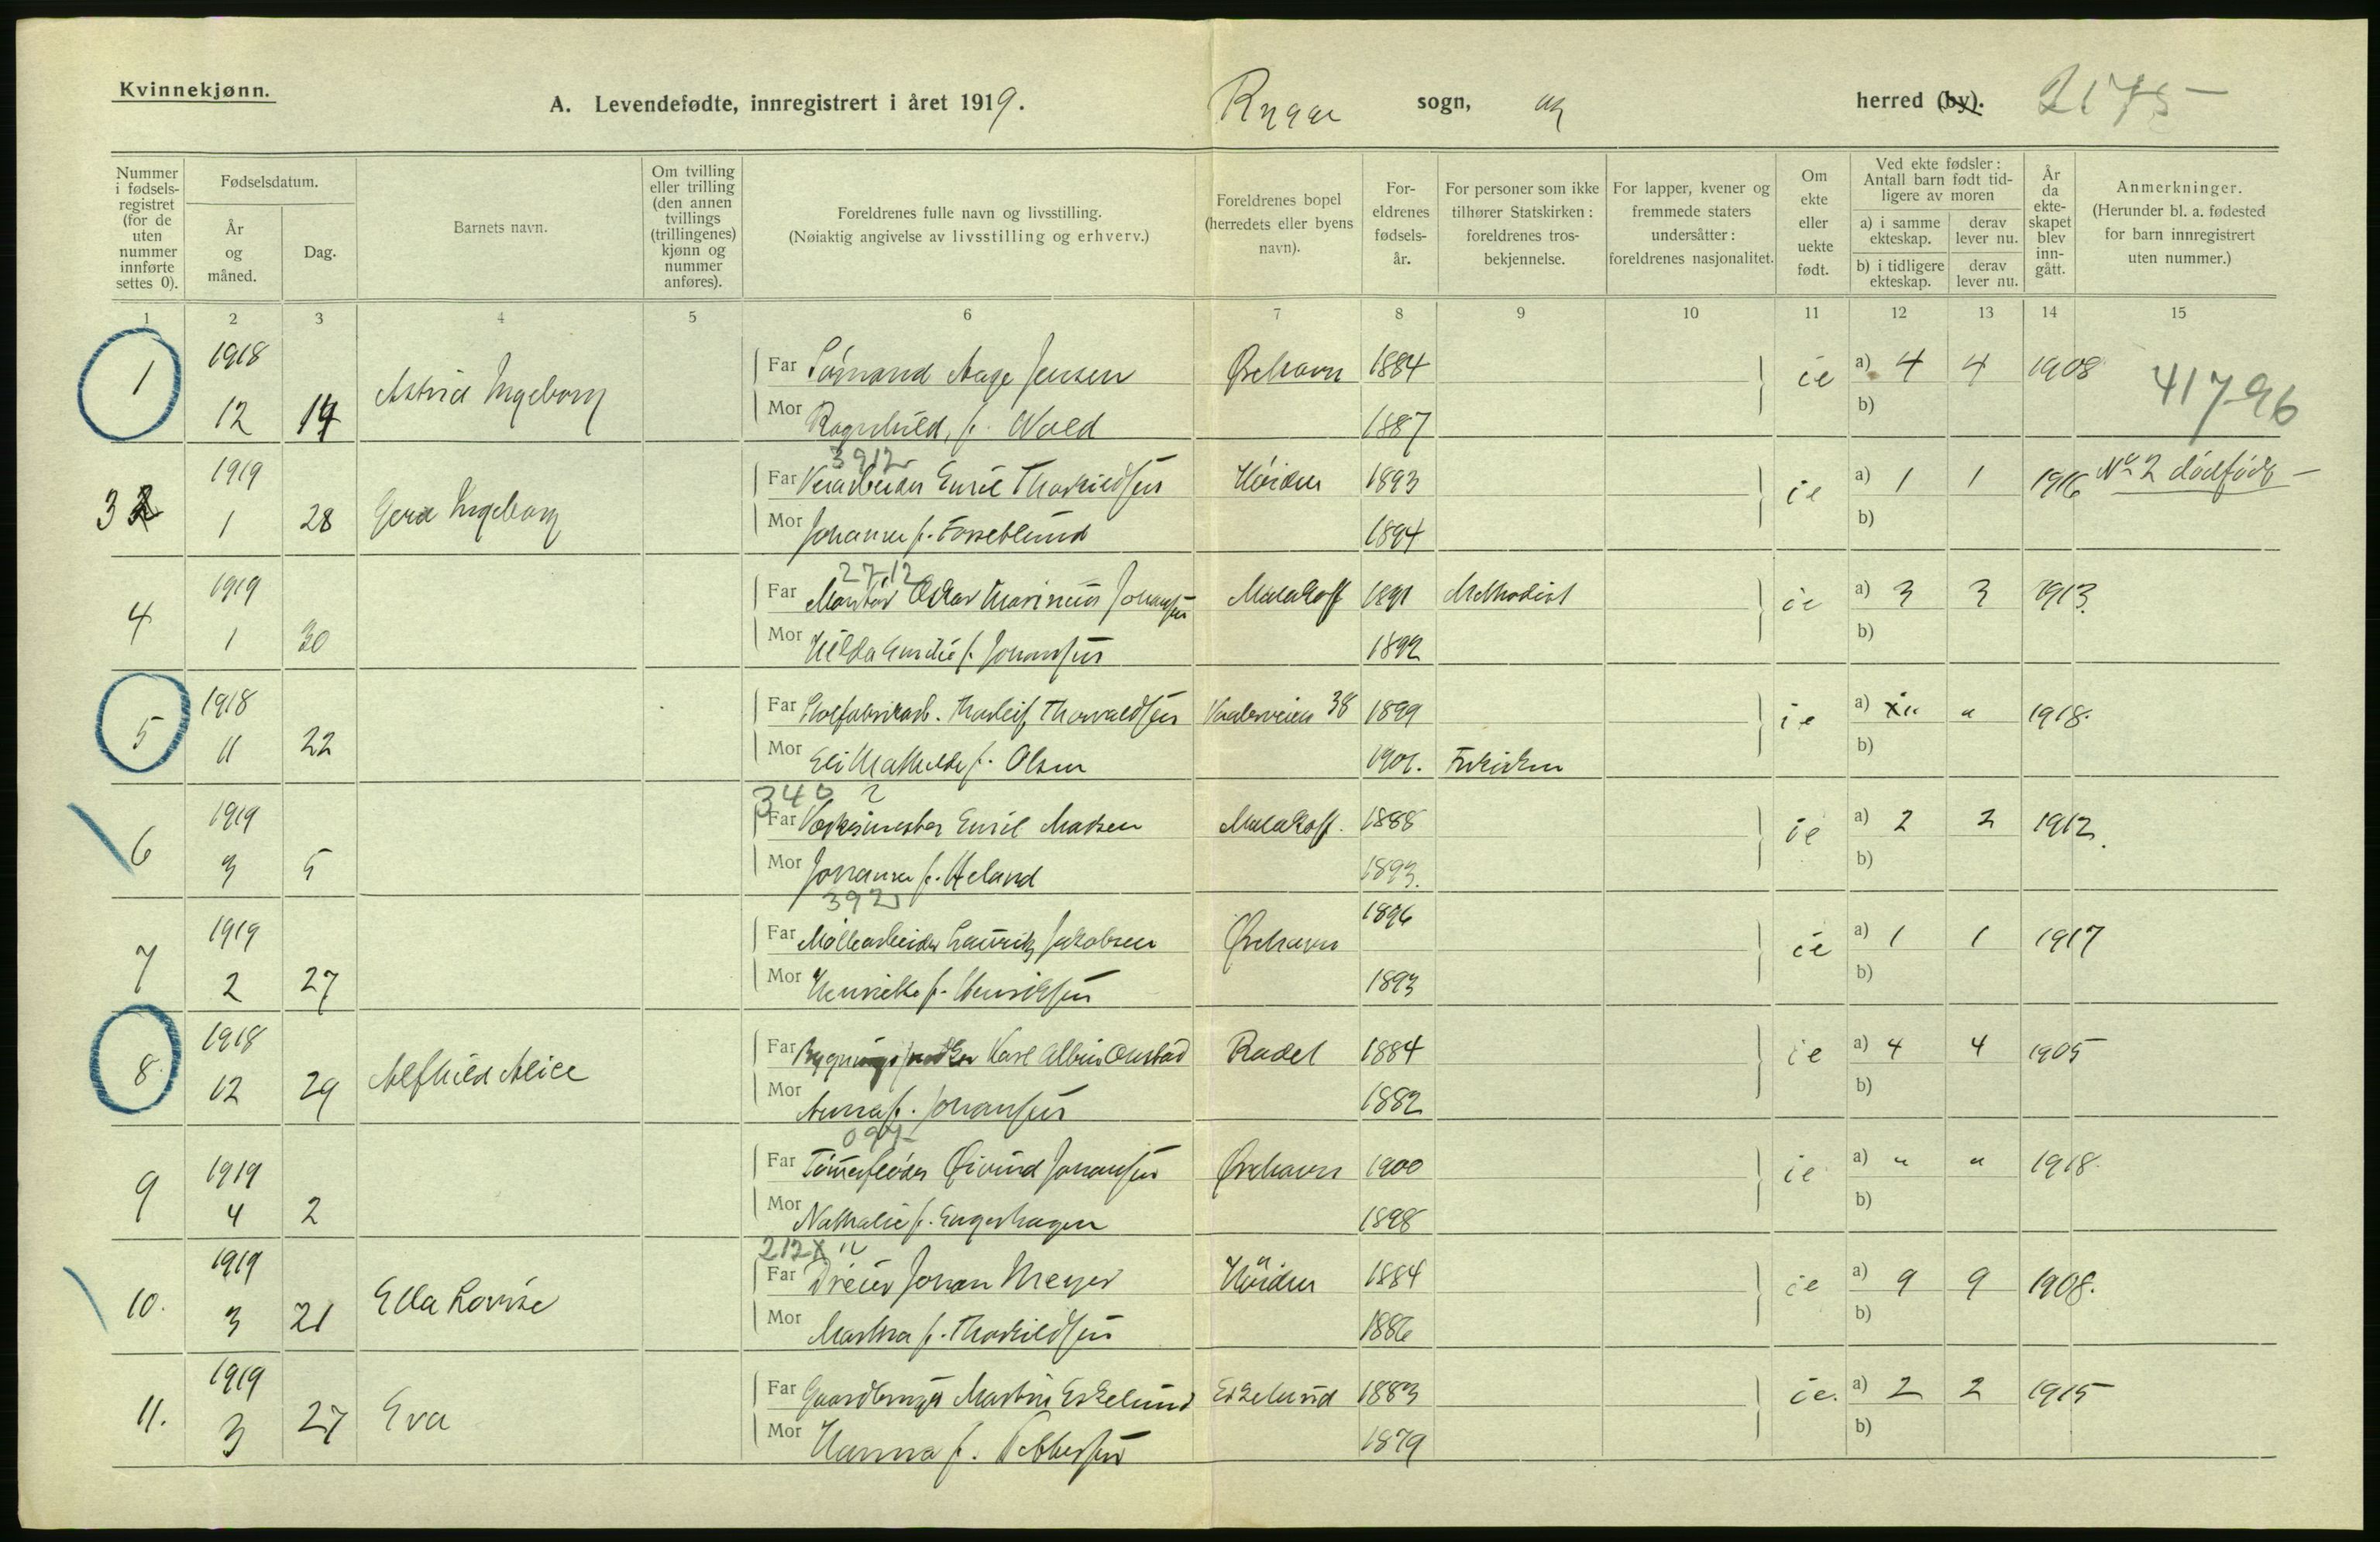 Kvinnekjønn.
A. Levendefødte, innregistrert i året 1919.
Rygge sogn, og herred (by). 2175
Nummer i fødselsregistret (for de uten nummer innførte settes 0).
Fødselsdatum.
År og måned.
Dag.
Barnets navn.
Om tvilling eller trilling (den annen tvillings (trillingenes) kjønn og nummer anføres).
Foreldrenes fulle navn og livsstilling.
(Nøiaktig angivelse av livsstilling og erhverv.)
Foreldrenes bopel (herredets eller byens navn).
Foreldrenes fødselsår.
For personer som ikke tilhører Statskirken: foreldrenes trosbekjennelse.
For lapper, kvener og fremmede staters undersåtter: foreldrenes nasjonalitet.
Om ekte eller uekte født.
Ved ekte fødsler: Antall barn født tidligere av moren
a) i samme ekteskap. derav lever nu.
b) i tidligere ekteskap. derav lever nu.
År da ekteskapet blev inngått.
Anmerkninger.
(Herunder bl. a. fødested for barn innregistrert uten nummer.)
1 2 3 4 5 6 7 8 9 10 11 12 13 14 15
1 1918 Astrid Ingeborg Far Sømand Aage Jensen Ørehavn 1884 ie a) 4 4 1908 41796
12 14 Mor Ragnhild, f. Wold 1887 b)
3912
3 1919 Gerd Ingeborg Far Emil Thorkildsen Høiden 1893 ie a) 1 1 1916 No 2 dødfødt
1 28 Mor Johanne f. Fosseblund 1894 b)
2712
4 1919 Far Montør Oskar Marinius Johansen Malakoff 1891 Methodist ie a) 3 3 1913.
1 30 Mor Hilda Emilie f. Johansen 1892 b)
5 1918 Far Thorleif Thorvaldsen Vaalerveien 38 1899 ie a) " " 1918.
11 22 Mor Eli Mathilde f. Olsen 1901. Frikirken b)
340 2
6 1919 Far Emil Madsen Malakoff. 1888 ie a) 2 2 1912.
3 5 Mor Johanne f. Heland 1893. b)
392
7 1919 Far Møllearbeider Lauritz Jakobsen Ørehavn 1896 ie a) 1 1 1917
2 27 Mor Henriette f. Henriksen 1893 b)
8 1918 Alfhild Alice Far Karl Albin Onstad Rødel 1884 ie a) 4 4 1905
12 29 Mor Anna f. Johansen 1882 b)
9 1919 Far Tømmerfløder Øivind Johansen Ørehavn 1900 ie a) " " 1918.
4 2 Mor Nathalie f. Engerhagen 1898 b)
212x "
10. 1919 Ella Lovise Far Dreier Johan Meyer Høiden 1884 ie a) 9 9 1908.
3 21 Mor Martha f. Thorkildsen 1886 b)
11. 1919 Eva Far Gaardbruger Martin Eskelund Eskelund 1883 ie. a) 2 2 1915
3 27 Mor Hanna f. Pettersen 1879 b)